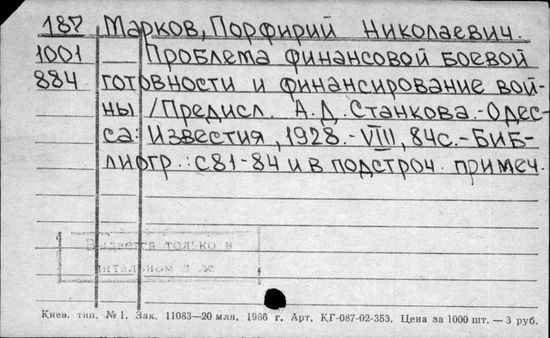 187 Марков, Порфирий Николаевич.
1001 Проблема финансовой боевой
884 готовности и финансирование вой-
ны /Предисл. А.Д. Станкова.-Одес-
са: Известия, 1928.-VIII, 84с.-Биб-
лиогр.: с 81-84 и в подстроч. примеч.
Выдается только в
читальном з
Киев. тип. №1. Зак. 11083—20 млн. 1986 г. Арт. КГ-087-02-353. Цена за 1000 шт. — 3 руб.